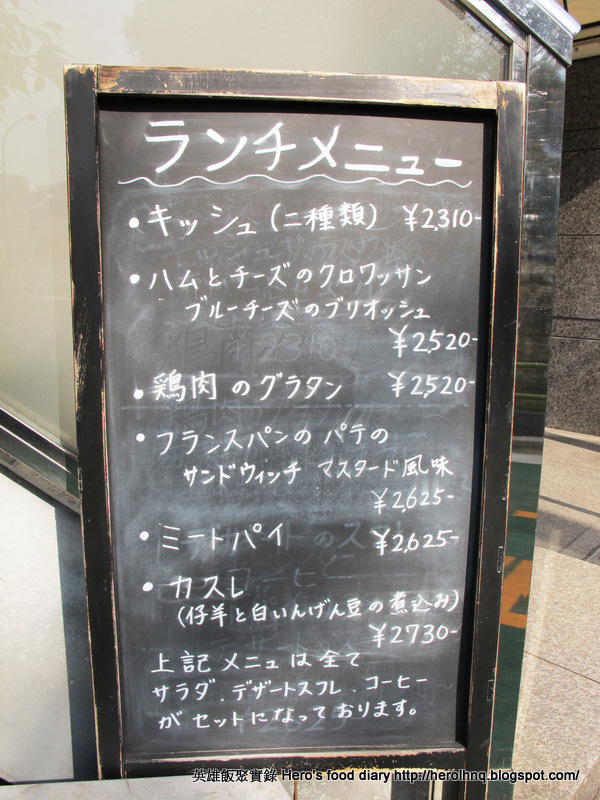 ランチメニュー
・キッシュ(二種類) ¥2,310-
・ハムとチーズのクロワッサン
ブルーチーズのブリオッシュ
¥2,520-
・鶏肉のグラタン ¥2,520-
・フランスパンのパテの
サンドウィッチ マスタード風味
¥2,625-
・ミートパイ ¥2,625-
・カスレ
(仔羊と白いんげん豆の煮込み)
¥2730-
上記メニュは全て
サラダ.デザートスフレ.コーヒー
がセットになっております。
英雄飯聚實錄 Hero's food diary http://herolhnq.blogspot.com/